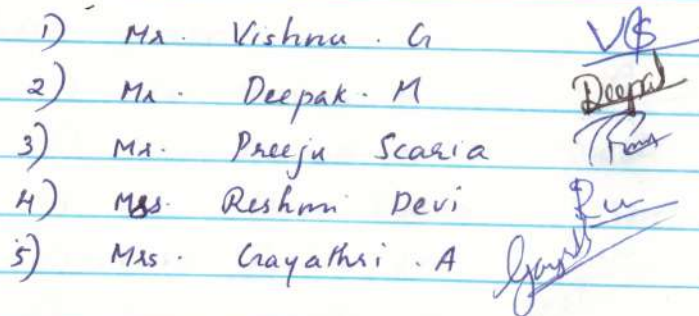 1) Mr. Vishnu. G VGS
2) Mr. Deepak. M Deepak
3) Mr. Preeju Scaria
4) Mrs. Reshmi Devi
5) Mrs. Gayathri. A